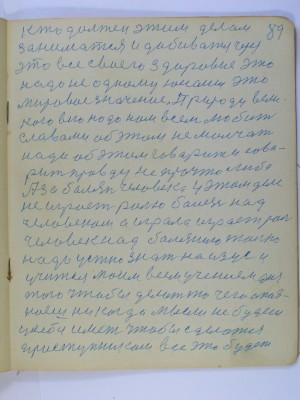 кто должен этим делам 89
заниматся и добиватися
это все своего здоровие это
надо не одному юноши это
мировое значение, Природу вели-
кого его надо нам всем любит
словами об этом не молчат
надо об этом говорит и гово-
рит правду не про что либо
А за болезь человека у этом деле
не играет ролю болезь над
человеком а играла играет рол
человек над болезнию только
надо усно знат наизус и
учится моим всем учением для
того чтобы делат то чего
никогда мысли не будет
имет чтобы сделатся
преступником все это будет